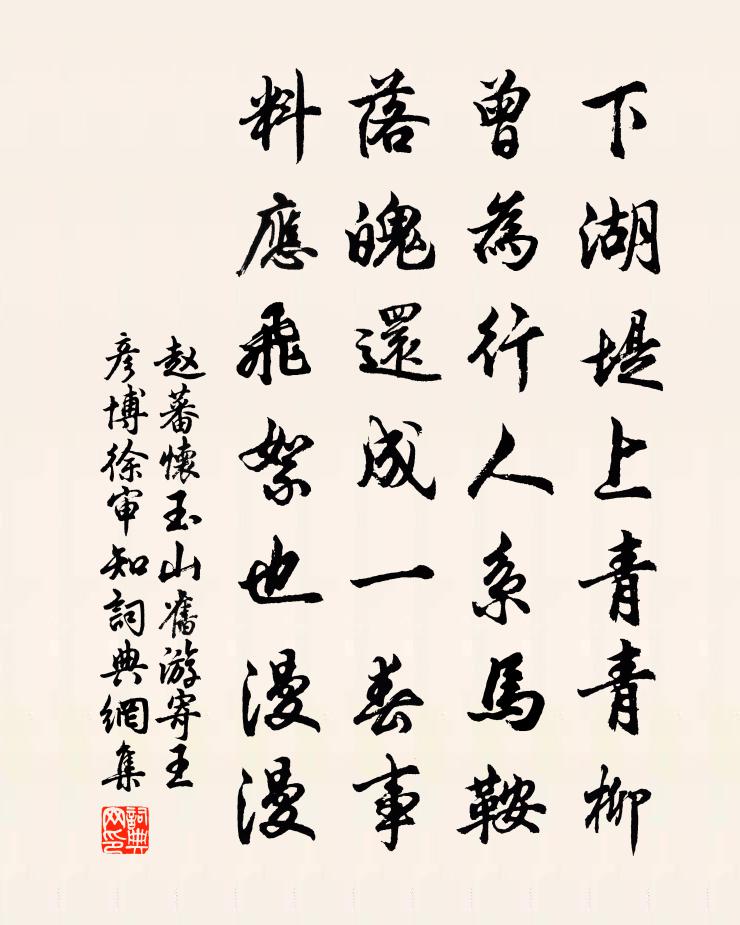 下湖堤上青青柳
曾為行人系馬鞍
落魄還成一春事
料應飛絮也漫漫
赵蕃懷玉山舊游寄王
彦博徐审知詞典網集
詞典網印